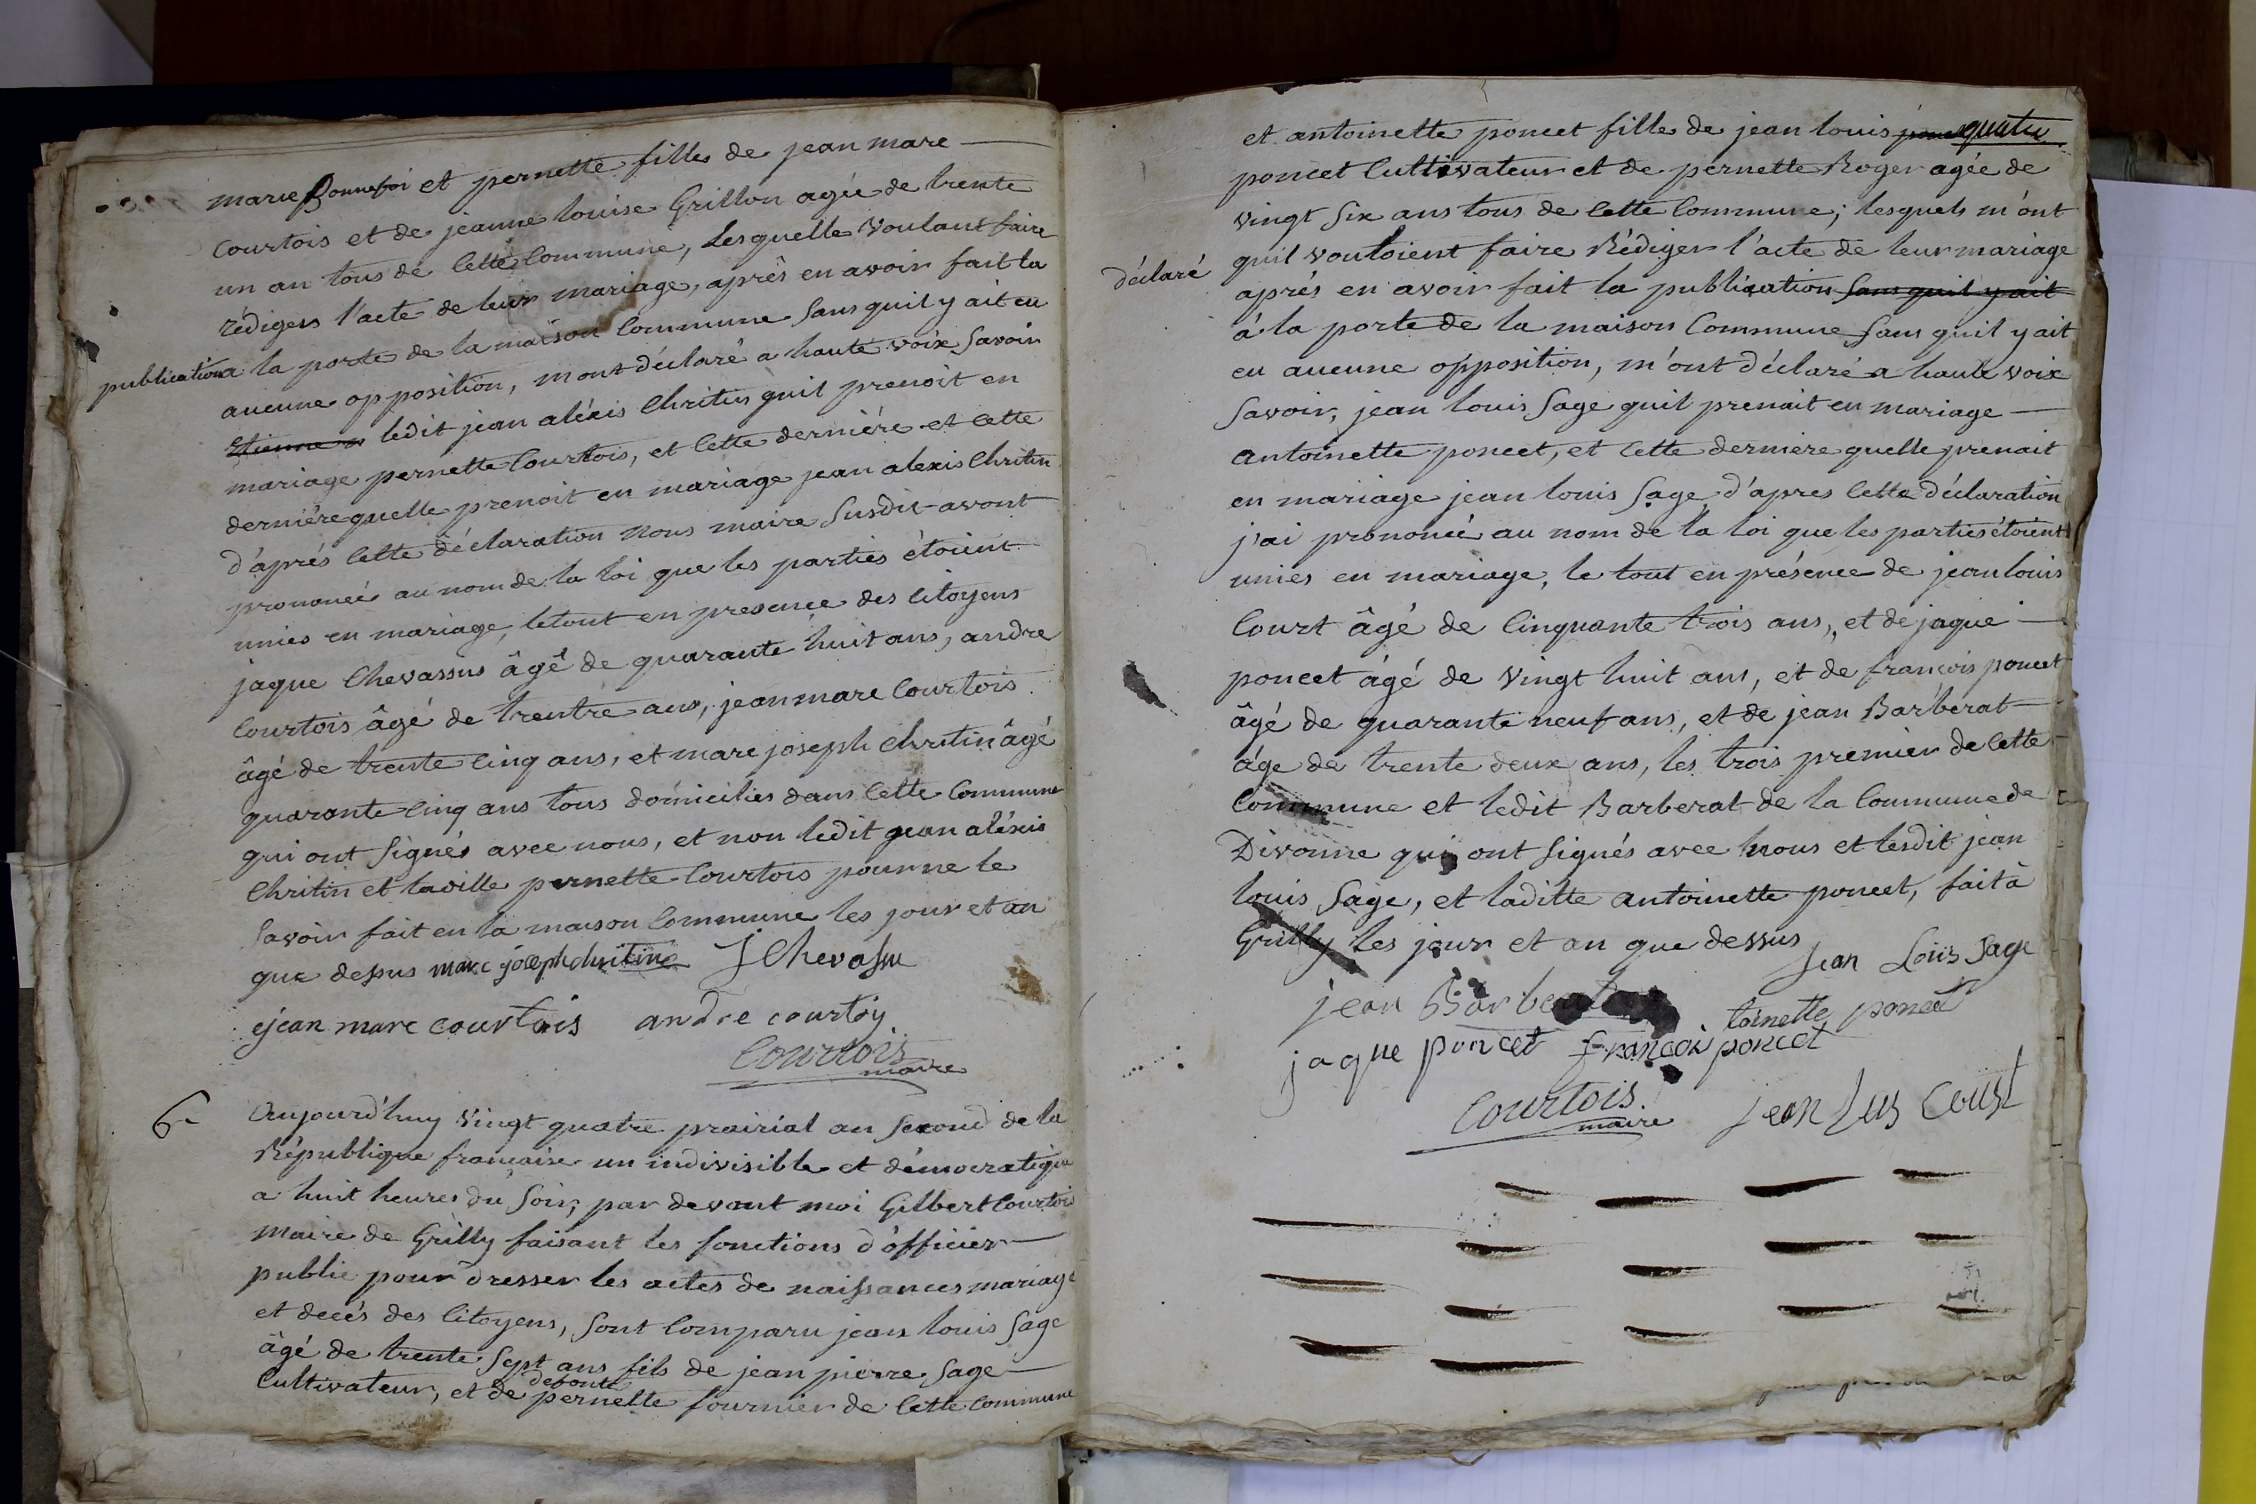 marie Bonnefoi et pernette fille de jean marc
Courtois et de jeanne louise Grillon agée de trente
un an tous de Cette Commune, Lesquelle voulant faire
rédigers l'acte de leur mariage, après en avoir fait la
publication a la porte de la maison Commune Sans quil y ait eu
aucune opposition, m'ont déclaré a haute voix Savoir
Etienne ledit jean aléxis Chritin quil prenoit en
mariage pernette Courtois, et Cette derniére et cette
derniére quelle prenoit en mariage jean alexis Chritin
d'aprés Cette déclaration nous maire Susdit avont
prononcé au nom de la loi que les parties étoient
unies en mariage, le tout en presence des Citoyens
jaque Chevassus âgé de quarante huit ans, andre
Courtois âgé de trentre ans, jean marc Courtois
âgé de trente Cinq ans, et marc joseph Chritin âgé
quarante Cinq ans tous domiciliés dans Cette Commune
qui ont Signés avec nous, et non ledit jean aléxis
Chritin et laditte pernette Courtois pour ne le
Savoir fait en la maison Commune les jour et an
que dessus marc joseph chritin J Chevassu
jean marc courtois andre courtoy
Courtois
maire
6
Aujourd'huy vingt quatre prairial an Second de la
République francaise un indivisible et démocratique
a huit heures du Soir, par devant moi Gilbert Courtois
maire de Grilly faisant les fonctions d'officier
public pour dresser les actes de naissances mariage
et decés des Citoyens, Sont Comparu jean louis Sage
âgé de trente Sept ans fils de jean pierre Sage
defonte
Cultivateur, et de pernette fournier de Cette Commune
et antoinette poncet fille de jean louis quatre
poncet Cultivateur et de pernette Roger agée de
vingt Six ans tous de Cette Commune; lesquels m'ont
déclaré quil vouloient faire Rédiger l'acte de leur mariage
aprés en avoir fait la publication Sans quil y ait
à la porte de la maison Commune Sans quil y ait
eu aucune opposition, m'ont déclaré a haute voix
Savoir, jean louis Sage quil prenait en mariage
antoinette poncet, et Cette derniere quelle prenait
en mariage jean louis Sage, d'apres Cette déclaration
j'ai prononcé au nom de la loi que les parties étoient
unies en mariage, le tout en présence de jean louis
Court âgé de Cinquante trois ans, et de jaque
poncet âgé de vingt huit ans, et de françois poncet
âgé de quarante neuf ans, et de jean Barberat
âge de trente deux ans, les trois premier de Cette
Commune et ledit Barberat de la Commune de
Divonne qui ont Signés avec nous et lesdit jean
louis Sage, et laditte antoinette poncet, fait à
Grilly les jour et an que dessus
Jean Loüs Sage
jean Barberat
toinette poncet
jaque poncet françois poncet
Courtois
maire
jean lus Coust